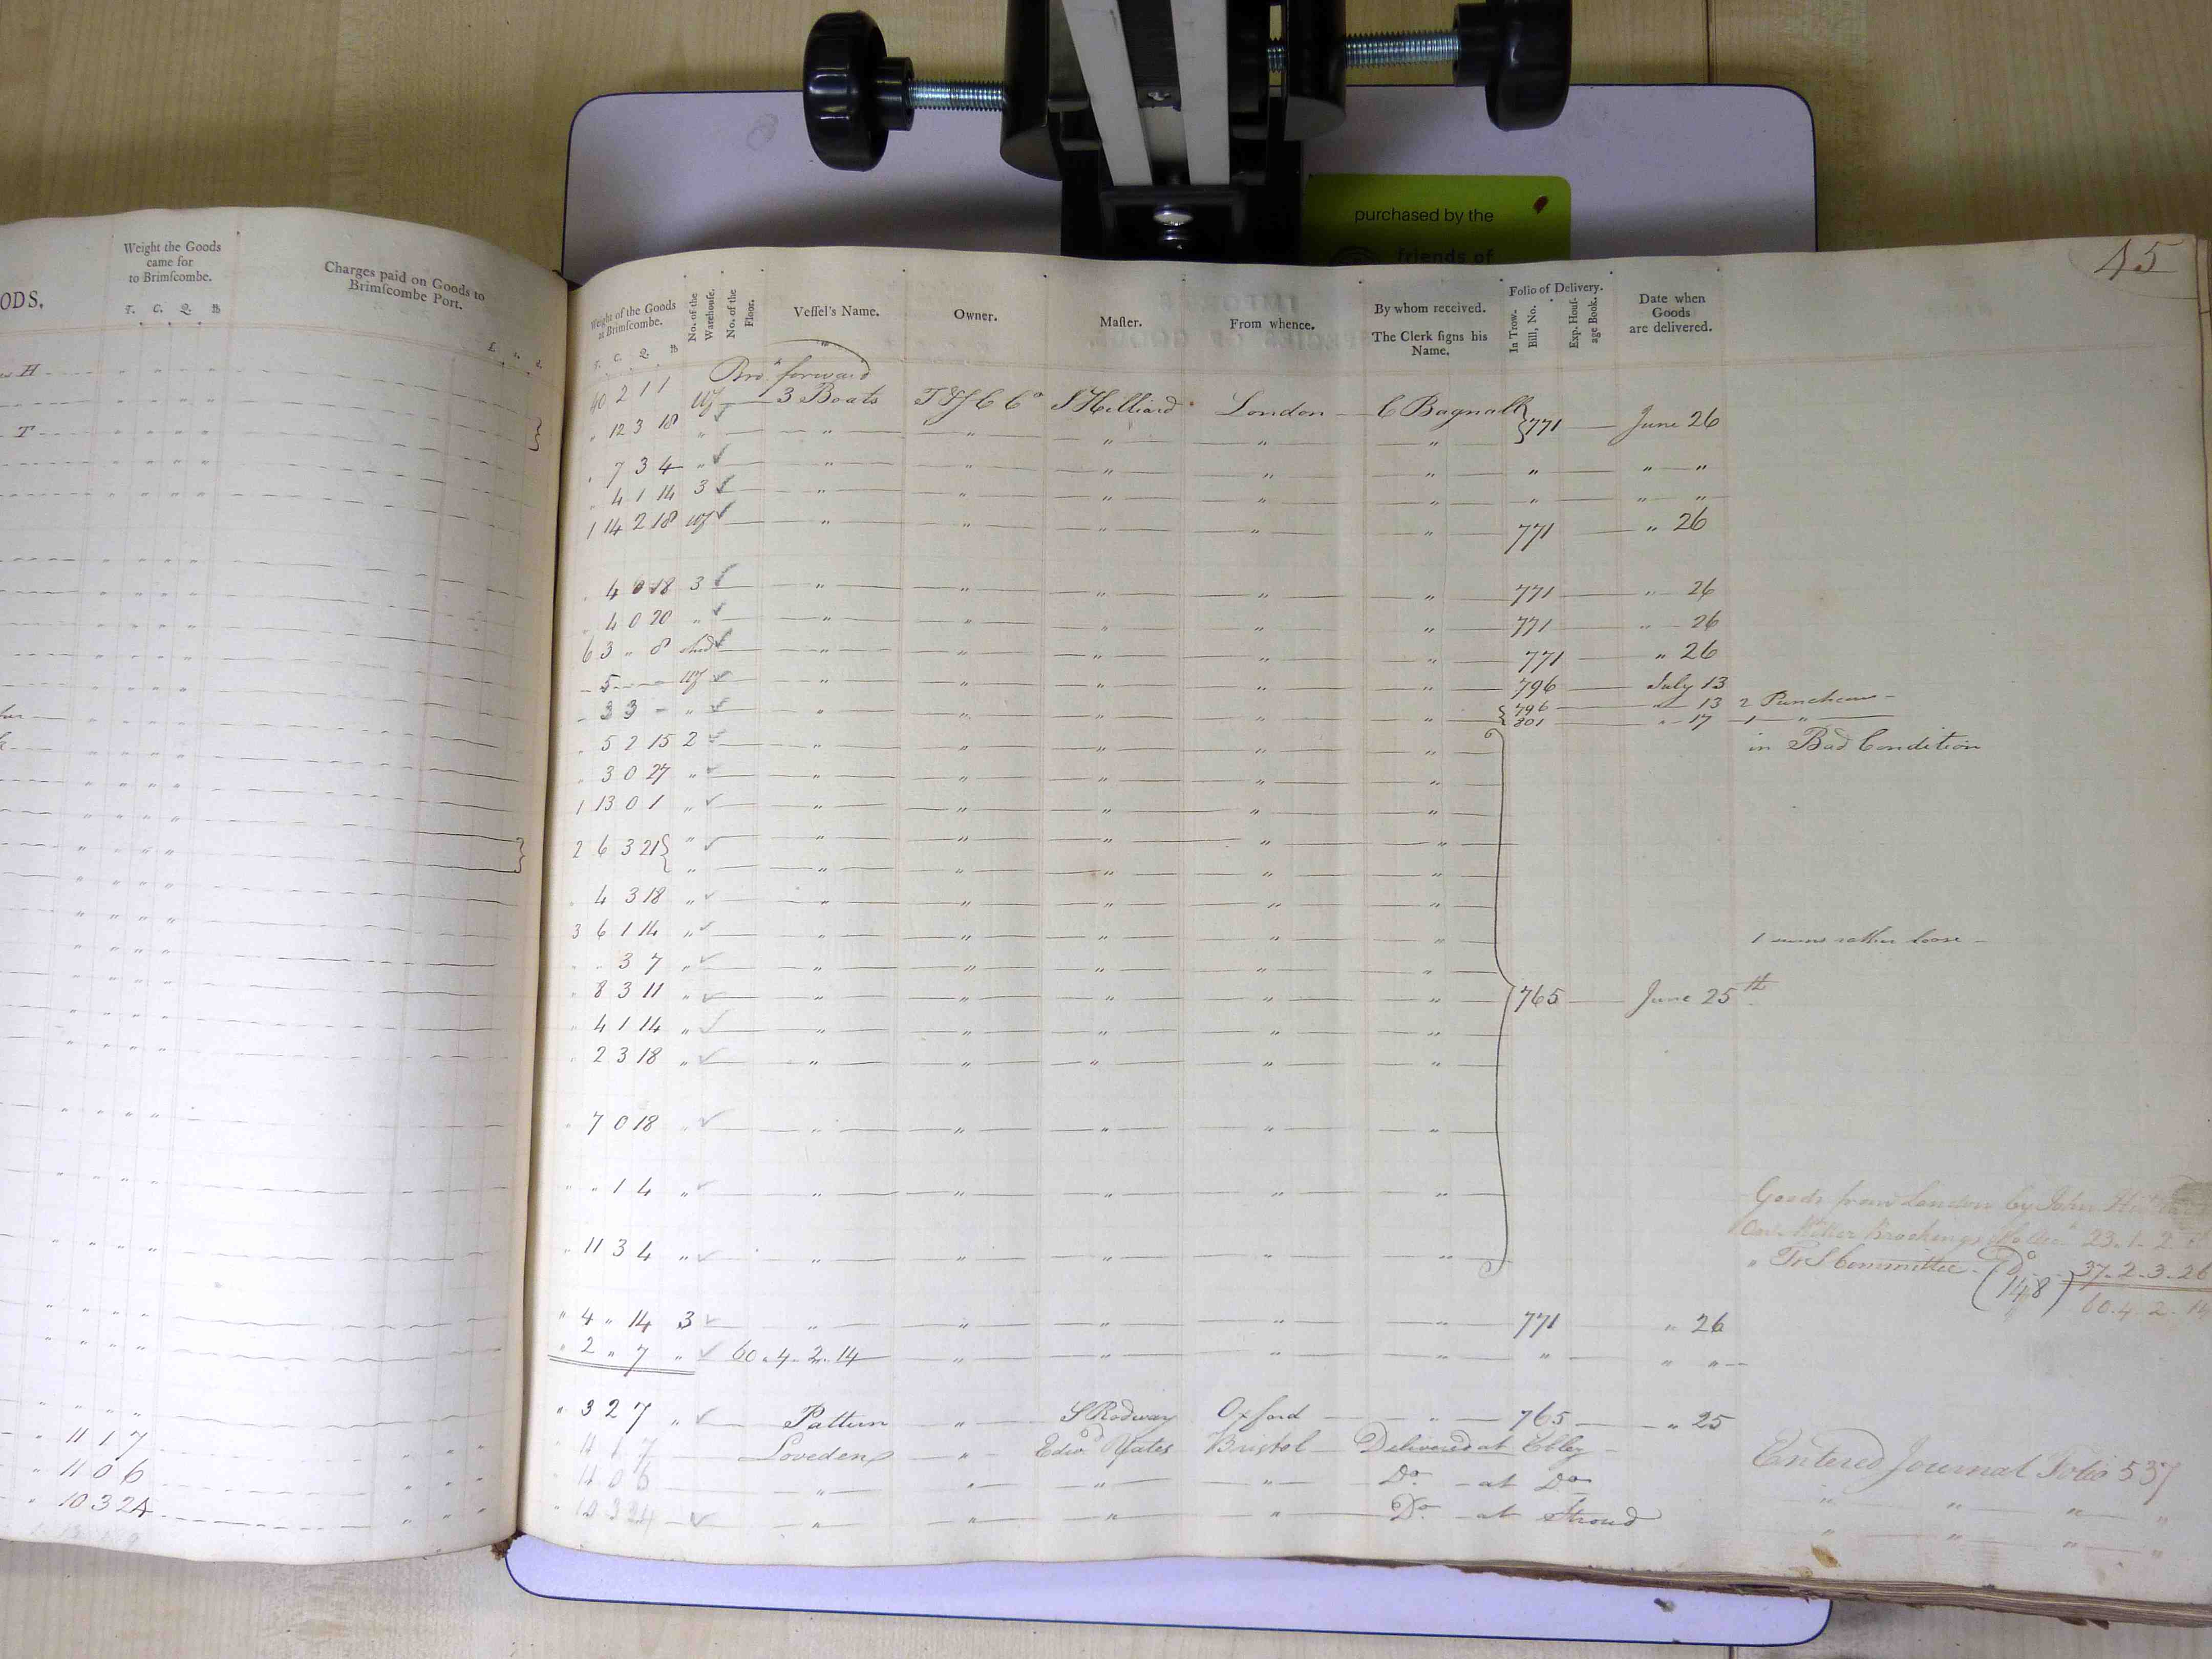 purchased by the
friends of
45
ODS.
Weight the Goods
came for
to Brimſcombe.
T. C. Q. lb
Charges paid on Goods to
Brimſcombe Port.
H
T
11 1 7
11 0 6
10 3 24
Weight of the Goods
at Brimſcombe.
T. C. Q. lb
No. of the
Warehouſe.
No. of the
Floor.
Veſſel's Name.
Owner.
Maſter.
From whence.
By whom received.
The Clerk ſigns his
Name.
Folio of Delivery.
In Trow-
Bill, No.
Exp. Houſ-
age Book.
Date when
Goods
are delivered.
Bro.t forward
40 2 1 1 Wf 3 Boats T&S C Co S Hilliard London C Bagnall
" 12 3 18 " " " " " " } 771 June 26
" 7 3 4 " " " " " " " " "
" 4 1 14 3 " " " " " " " "
1 14 2 18 Wf " " " " " 771 " 26
" 4 0 18 3 " " " " " 771 " 26
" 4 0 20 " " " " " " 771 " 26
6 3 " 8 " " " " " 771 " 26
- 5 - - Wf " " " " " 796 July 13
- 3 3 - " " " " " " { 796 " 13 2 Puncheons
801 " 17 1 "
" 5 2 15 2 " " " " " in Bad Condition
" 3 0 27 " " " " " "
1 13 0 1 " " " " " "
2 6 3 21 } " " " " " "
" " " " " "
" 4 3 18 " " " " " "
3 6 1 14 " " " " " " 1 seems rather loose -
" " 3 7 " " " " " "
" 8 3 11 " " " " " " 765 June 25th
" 4 1 14 " " " " " "
" 2 3 18 " " " " " "
" 7 0 18 " " " " " "
" " 1 4 " " " " " "
" 11 3 4 " " " " " "
Goods from London by John
23.1.2.
" T&S Committee - Do 37-2-3-26
(148) 60.4.2.14
" 4 " 14 3 " " " " " 771 " 26
" 2 " 7 " 60.4.2.14 " " " " " " "
" 3 2 7 " Pattern " S Rodway Oxford " 765 " 25
11 1 7 Loveden " Edwd Yates Bristol Delivered at Ebley
11 0 6 " " " " Do - at Do
10 3 24 " " " " Do - at Stroud
Entered Journal Folio 537
" " " "
" " " "